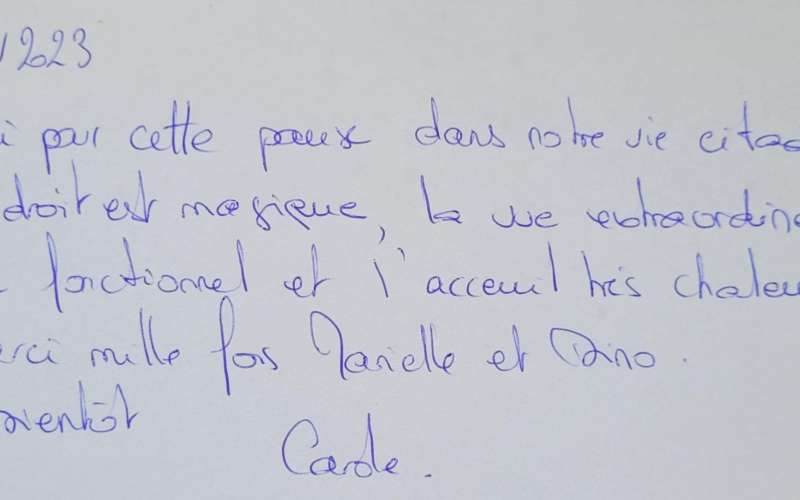 /2023
i par cette pause dans notre vie citad
droit est magique, la vue extraordina
fonctionnel et l'acceuil très chaleu
rci mille fois Marielle et Dino.
bientôt
Carole.